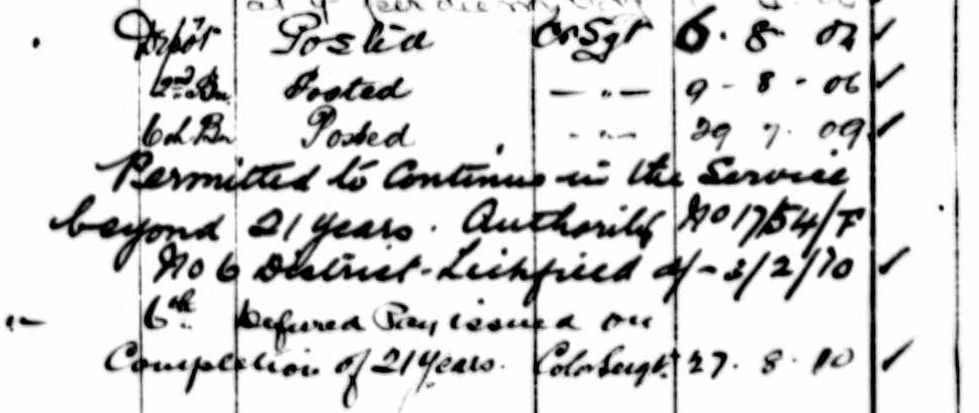 Depôt Posted Cr Sgt 6 . 8 . 04 ✓
2nd Bn Posted — " — 9 - 8 - 06 ✓
6th Bn Posted - " - 29 7 . 09 ✓
Permitted to Continue in the Service
beyond 21 years . Authority No 17/54/F
No 6 District - Lichfield d/- 3/2/10 ✓
6th Defured Pay issued on
Completion of 21 Years. Color Sergt. 27 . 8 . 10 ✓